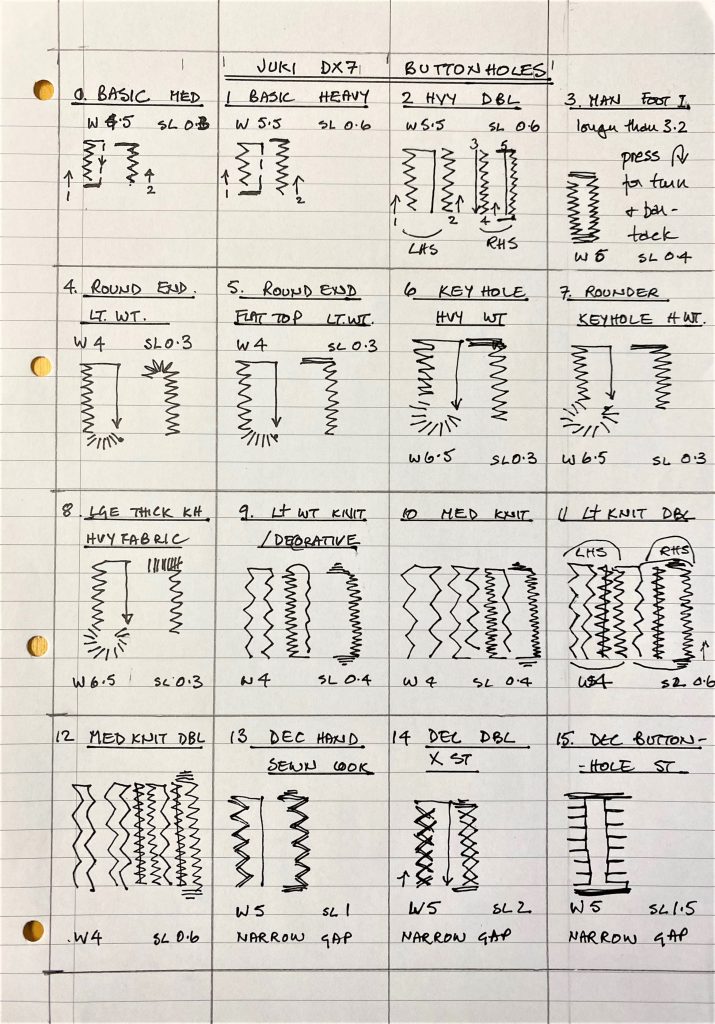 JUKI DX7 BUTTONHOLES
0. BASIC MED
W 5.5 SL 0.3
1 2
1 BASIC HEAVY
W 5.5 SL 0.6
1 2
2 HVY DBL
W 5.5 SL 0.6
3 5
1 2 4
LHS RHS
3. MAN FOOT I.
longer than 3.2
press
for turn
& bar-
tack
W 5 SL 0.4
4. ROUND END.
LT. WT.
W 4 SL 0.3
5. ROUND END
FLAT TOP LT. WT.
W 4 SL 0.3
6 KEY HOLE
HVY WT
W 6.5 SL 0.3
7. ROUNDER
KEYHOLE H WT.
W 6.5 SL 0.3
8. LGE THICK KH
HVY FABRIC
W 6.5 SL 0.3
9. Lt WT KNIT
/DECORATIVE
W 4 SL 0.4
10 MED KNIT
W 4 SL 0.4
11 Lt KNIT DBL
LHS RHS
W 4 SL 0.6
12 MED KNIT DBL
W 4 SL 0.6
13 DEC HAND
SEWN LOOK
W 5 SL 1
NARROW GAP
14 DEC DBL
X ST
W 5 SL 2
NARROW GAP
15. DEC BUTTON-
-HOLE ST
W 5 SL 1.5
NARROW GAP